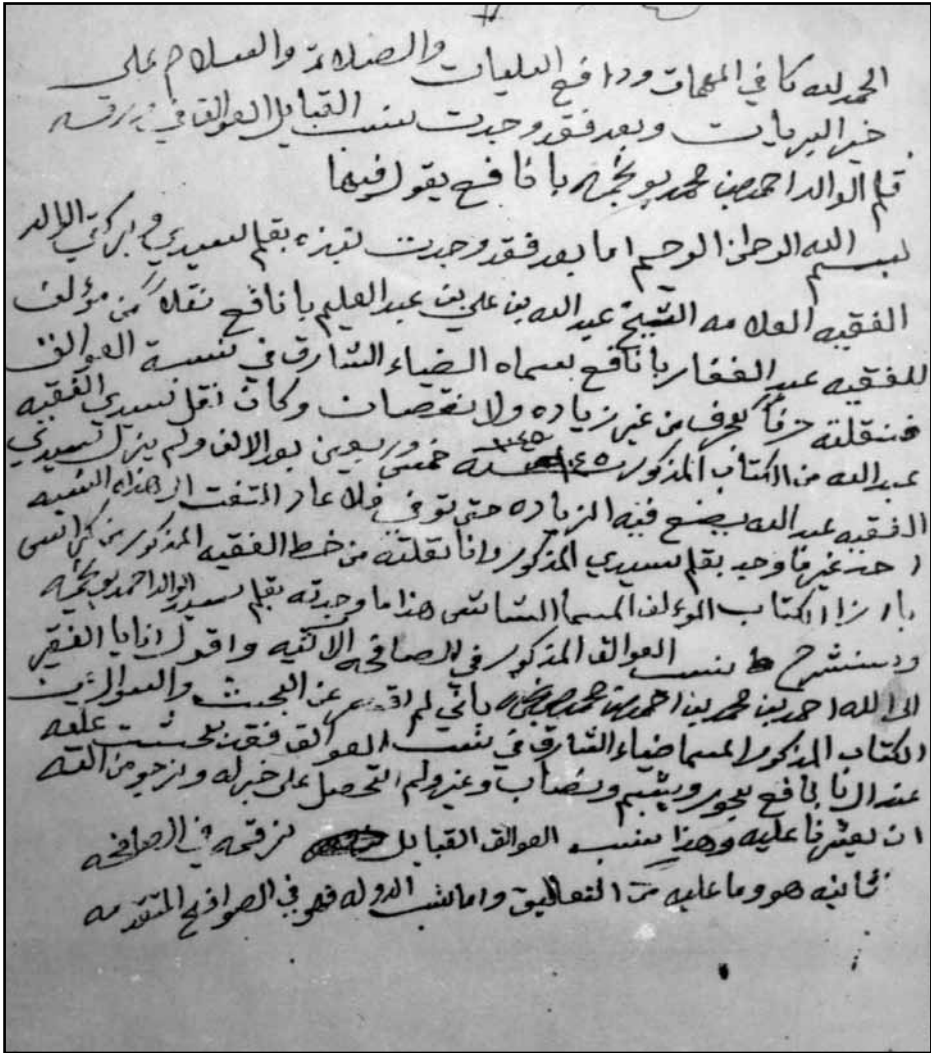 الحمد لله كافي المهمات ودافع البليات والصلاة والسلام على
خير البريات وبعد فقد وجدت نسب القبايل العوالق في ورقه
قلم الوالد احمد بن محمد بو نجمه بانافع يقول فيها
بسم الله الرحمن الرحيم اما بعد فقد وجدت نبذه بقلم سيدي وبركتي الوالد
الفقيه العلامه الشيخ عبدالله بن علي بن عبدالعليم بانافع نقلاً من مؤلف
للفقيه عبدالغفار بانافع بسماه الضياء الشارق في نسبة العوالق
فنقلته حرفاً بحرف من غير زياده ولا نقصان وكان نقل سيدي الفقيه
عبدالله من الكتاب المذكور سنة ١٠٤٥ خمس وربعين بعد الالف ولم يزل سيدي
الفقيه عبدالله يضع فيه الزياده حتى توفي فلا عاد التفت الى هذا النسبه
احد غير ما وجد بقلم سيدي المذكور وانا نقلته من خط الفقيه المذكور من
الكتاب المؤلف المسما انتهى هذا ما وجدته بقلم سيدي الوالد احمد بو نجمه
وسنشرح نسب العوالق المذكور في الصافحه الاتيه واقول انا يا الفقير
الى الله احمد بن محمد بن احمد بن محمد باني لم اقصر عن البحث والسوال من
الكتاب المذكور المسما ضياء الشارق في نسب العوالق فقد بحثت عليه
عند ال بانافع بحور ويشبم ونصاب وغير ولم التحصل على خبر له ونرجو من الله
ان يعثرنا عليه وهذا نسب العوالق القبايل نرقمه في الصافحه
ثانيه هو وما عليه من التعاليق واما نسب الدوله فهو في الصوافح المتقدمه